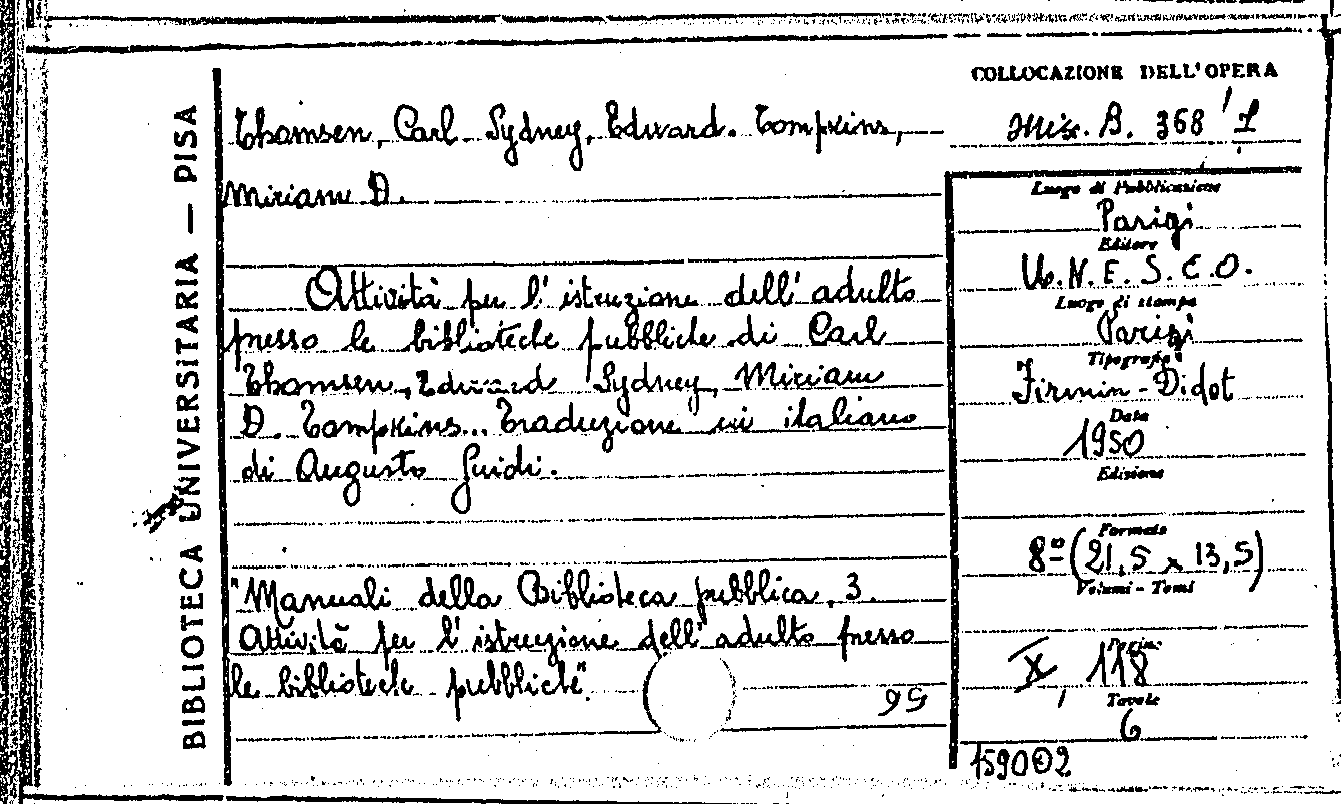 BIBLIOTECA UNIVERSITARIA — PISA
Thomsen, Carl. Sydney, Edward. Tompkins,
Miriam D.
Attività per l'istruzione dell'adulto
presso le biblioteche pubbliche di Carl
Thomsen, Edward Sydney, Miriam
D. Tompkins... Traduzione in italiano
di Augusto Guidi.
"Manuali della Biblioteca pubblica, 3.
Attività per l'istruzione dell'adulto presso
le biblioteche pubbliche".
99
COLLOCAZIONE DELL'OPERA
Misc. B. 368 / 1
Luogo di Pubblicazione
Parigi
Editore
U.N.E.S.C.O.
Luogo di stampa
Parigi
Tipografia
Firmin-Didot
Data
1950
Edizione
Formato
8º (21,5 x 13,5)
Volumi - Tomi
Pagine
X, 118
Tavole
6
159002